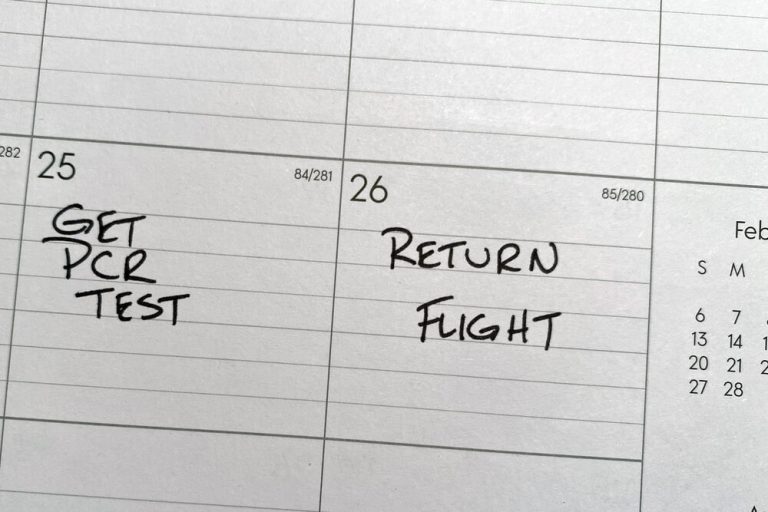 282
25 84/281
GET
PCR
TEST
26 85/280
RETURN
FLIGHT
Feb
S M
6 7
13 14
20 21
27 28